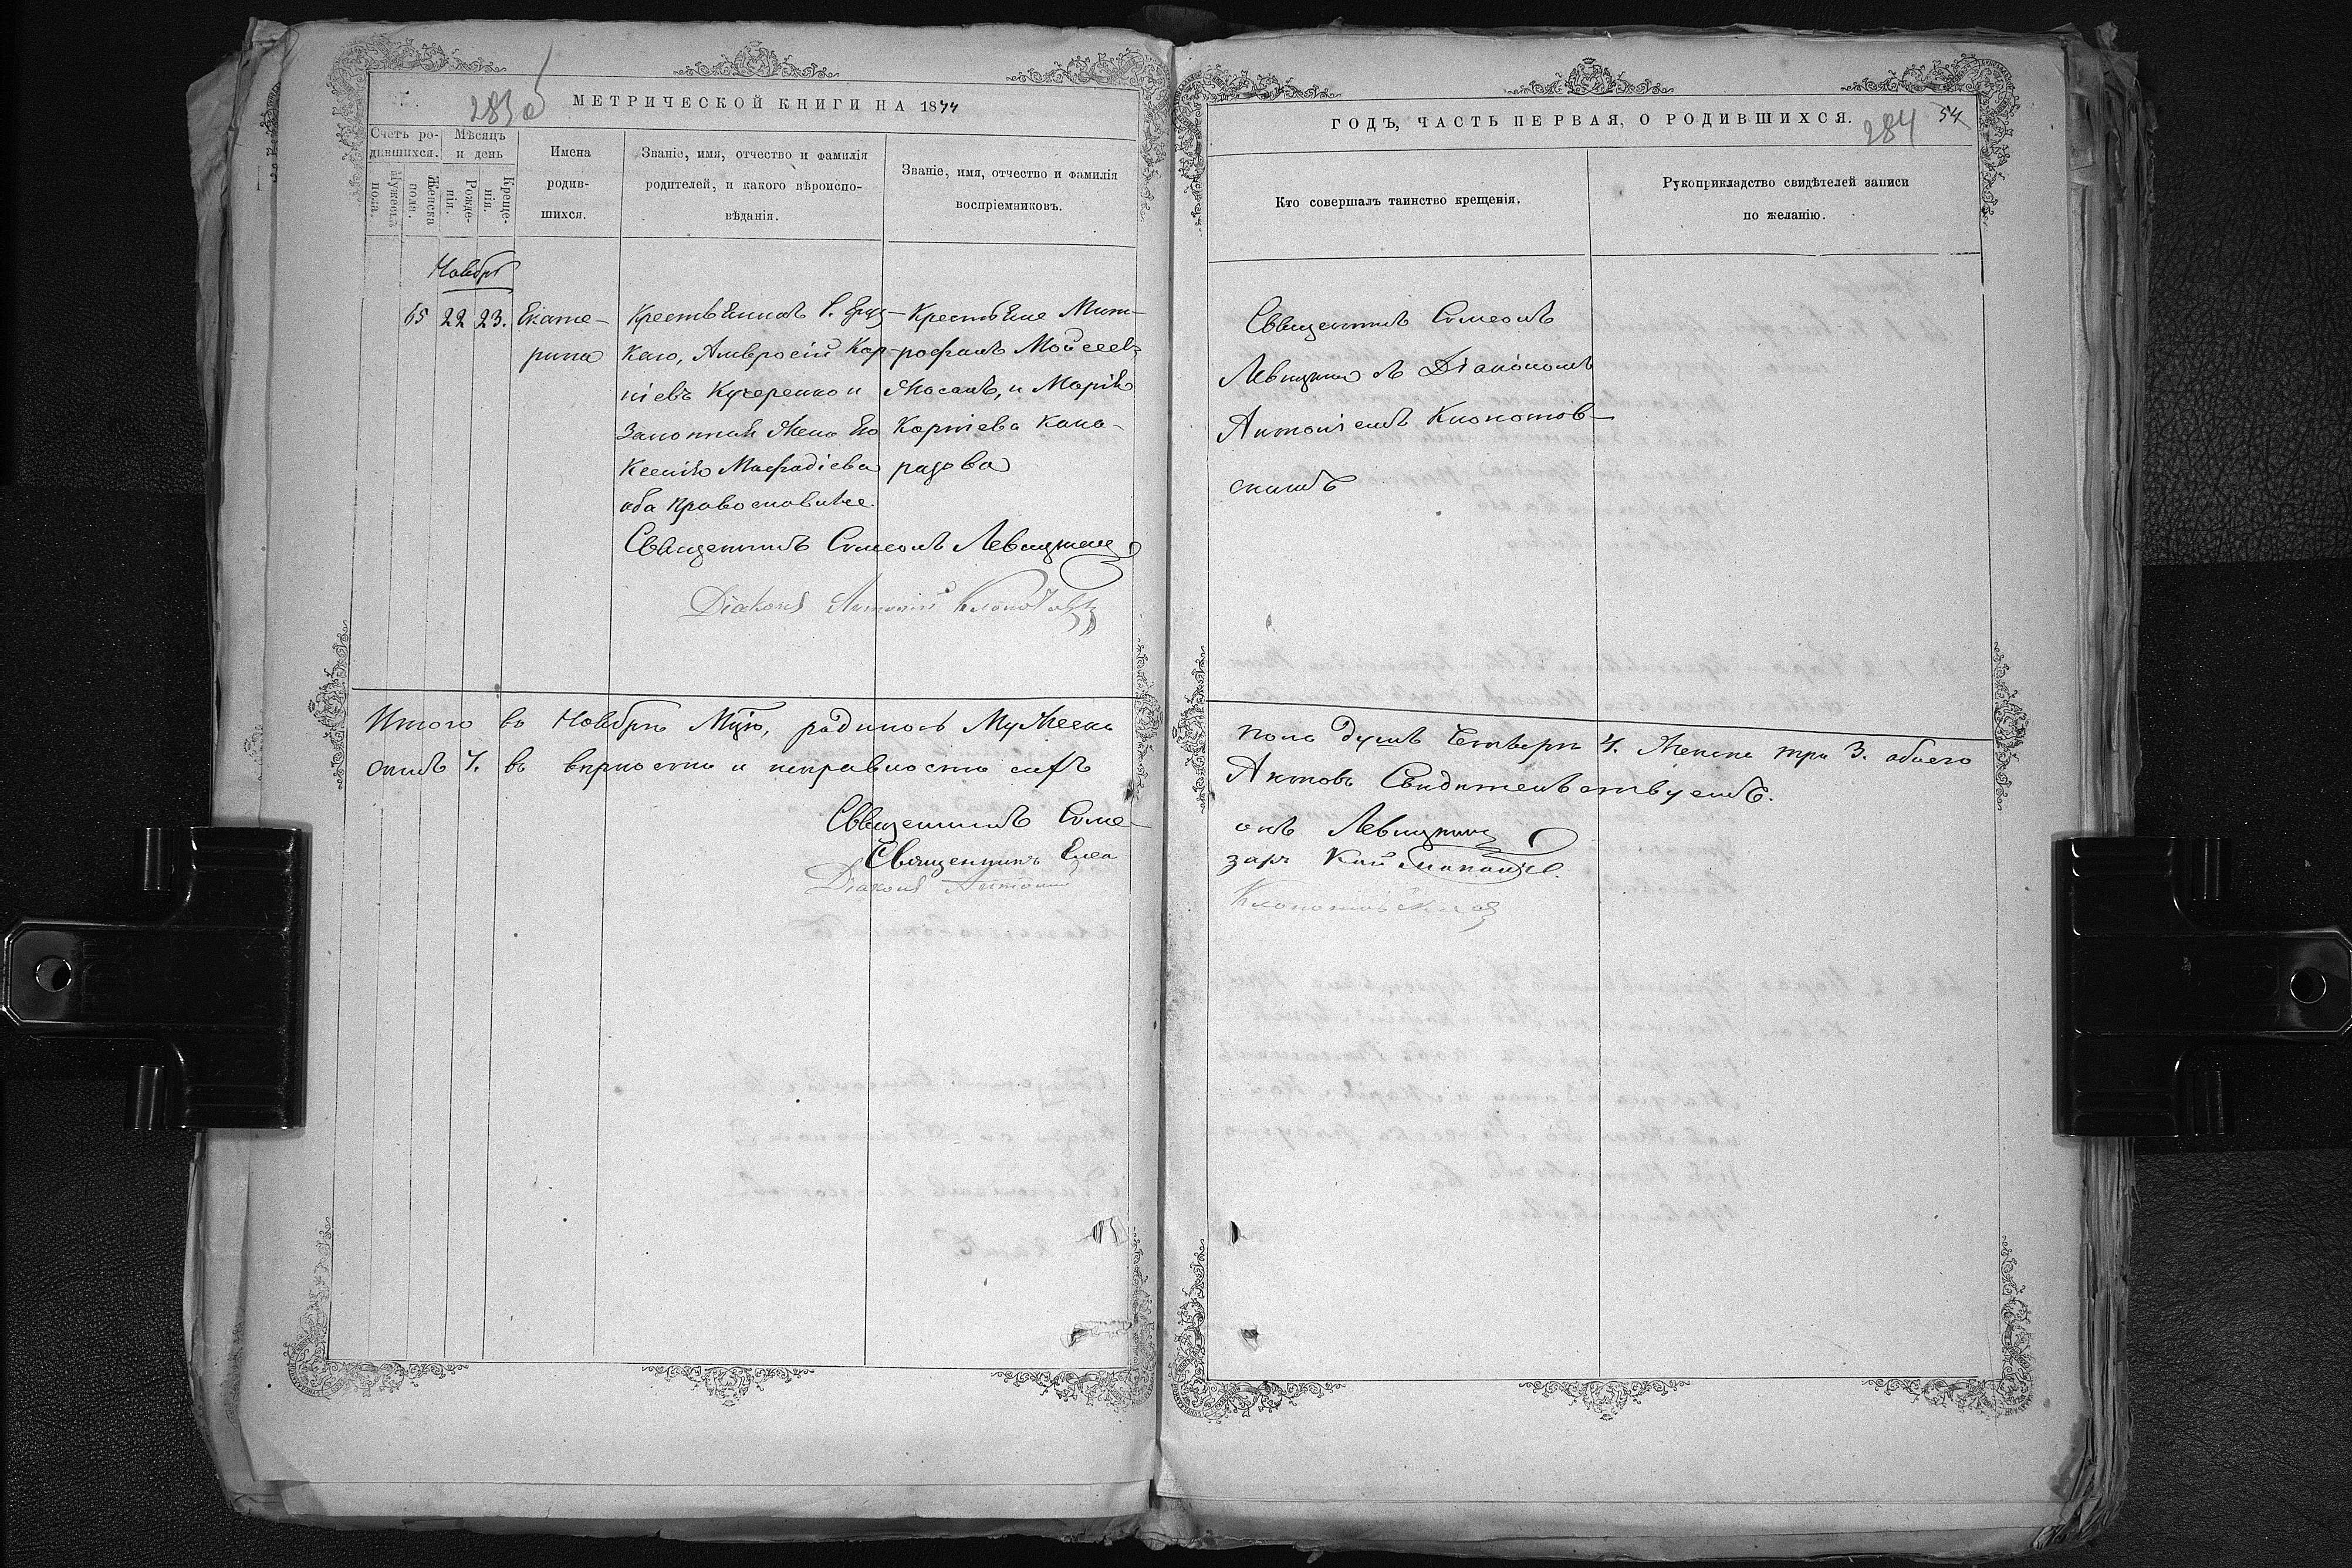 283 об
МЕТРИЧЕСКОЙ КНИГИ НА 1877
Счетъ ро-
дившихся.
Мужеска
пола.
Женска
пола.
Мѣсяцъ
и день
Рожде-
нія.
Креще-
нія.
Имена
родив-
шихся.
Званіе, имя, отчество и фамилія
родителей, и какого вѣроиспо-
вѣданія.
Званіе, имя, отчество и фамилія
воспріемниковъ.
Ноябрь
65 22 23.
Екате-
рина
Крестьянинъ
каго, Амвросій Кор-
ніевъ Кучеренко и
Законная жена его
Ксенія
оба Православные.
Крестьяне Мит-
рофанъ Мойсеевъ
и Марія
Корніева
Священникъ Симеонъ Левицкій
Діаконъ Антоній Клопотовскій
Итого въ Ноябрѣ родилось Мужеска
окихъ 7. въ вѣрности и исправности сихъ
Священникъ Симе-
Священникъ Елеа
Діаконъ Антоній
ГОДЪ, ЧАСТЬ ПЕРВАЯ, О РОДИВШИХСЯ.
284 54
Кто совершалъ таинство крещенія.
Рукоприкладство свидѣтелей записи
по желанію.
Священникъ Симеонъ
Левицкій съ Діакономъ
Антоніемъ Клопотов-
скимъ
пола душъ четверы 4. Женска три 3. обоего
Актовъ Свидѣтельствуемъ.
онъ Левицкій
заръ
Клопотовскій